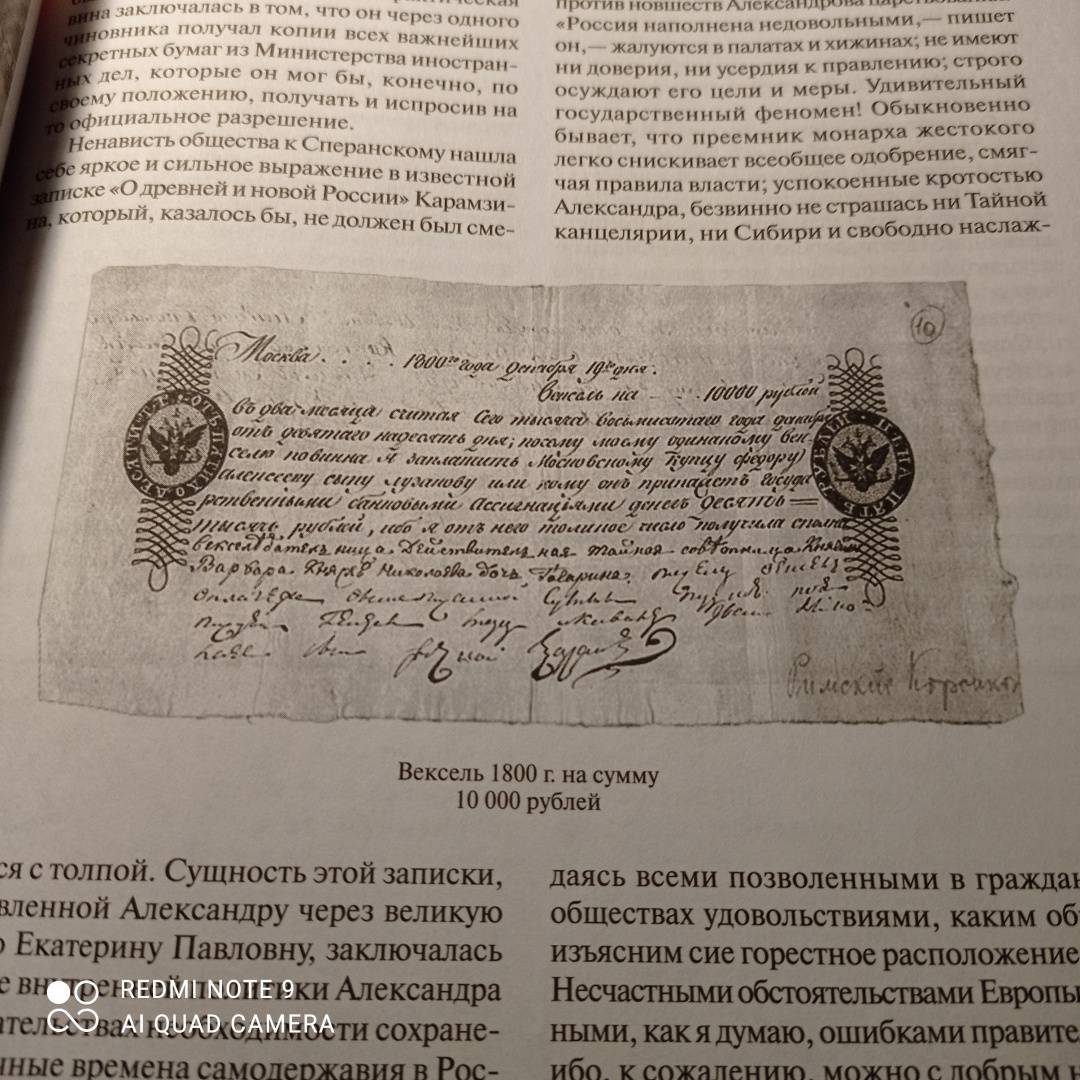 вина заключалась в том, что он через одного
чиновника получал копии всех важнейших
секретных бумаг из Министерства иностран-
ных дел, которые он мог бы, конечно, по
своему положению, получать и испросив на
то официальное разрешение.
Ненависть общества к Сперанскому нашла
себе яркое и сильное выражение в известной
записке «О древней и новой России» Карамзи-
на, который, казалось бы, не должен был сме-
против новшеств Александрова
«Россия наполнена недовольными,— пишет
он,— жалуются в палатах и хижинах; не имеют
ни доверия, ни усердия к правлению; строго
осуждают его цели и меры. Удивительный
государственный феномен! Обыкновенно
бывает, что преемник монарха жестокого
легко снискивает всеобщее одобрение, смяг-
чая правила власти; успокоенные кротостью
Александра, безвинно не страшась ни Тайной
канцелярии, ни Сибири и свободно наслаж-
10
Москва . . . . 1800го года декабря 19го дня.
Вексель на 10000 рублей
въ два месяца считая сего тысяча восьмисотаго года
отъ девятаго надесять дня; посему моему одинакому век-
селю повинна я заплатить Московскому купцу Федору
сыну или кому онъ прикажетъ госуда
рственными банковыми ассигнациями денегъ десять
тысячь рублей, ибо я отъ него толикое число получила сполна
Действительная тайная советница
Варбара Николаева дочь Гагарина
Римский Корсаков
Вексель 1800 г. на сумму
10 000 рублей
ся с толпой. Сущность этой записки,
вленной Александру через великую
Екатерину Павловну, заключалась
Александра
необходимости сохране-
времена самодержавия в Рос-
даясь всеми позволенными в граждан
обществах удовольствиями, каким об
изъясним сие горестное расположение
Несчастными обстоятельствами Европы
ными, как я думаю, ошибками правите
ибо, к сожалению, можно с добрым н
REDMI NOTE 9
AI QUAD CAMERA